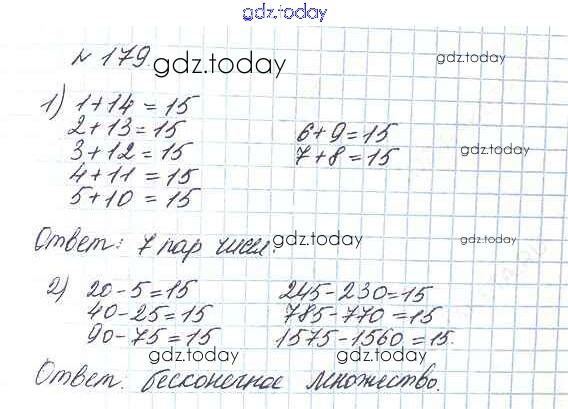 gdz.today
№ 179 gdz.today
gdz.today
1) 1+14=15
2+13=15 6+9=15
3+12=15 7+8=15 gdz.today
4+11=15
5+10=15
Ответ: 7 пар чисел. gdz.today gdz.today
2) 20-5=15 245-230=15
40-25=15 785-770=15
90-75=15 1575-1560=15.
gdz.today gdz.today
Ответ. бесконечное множество.